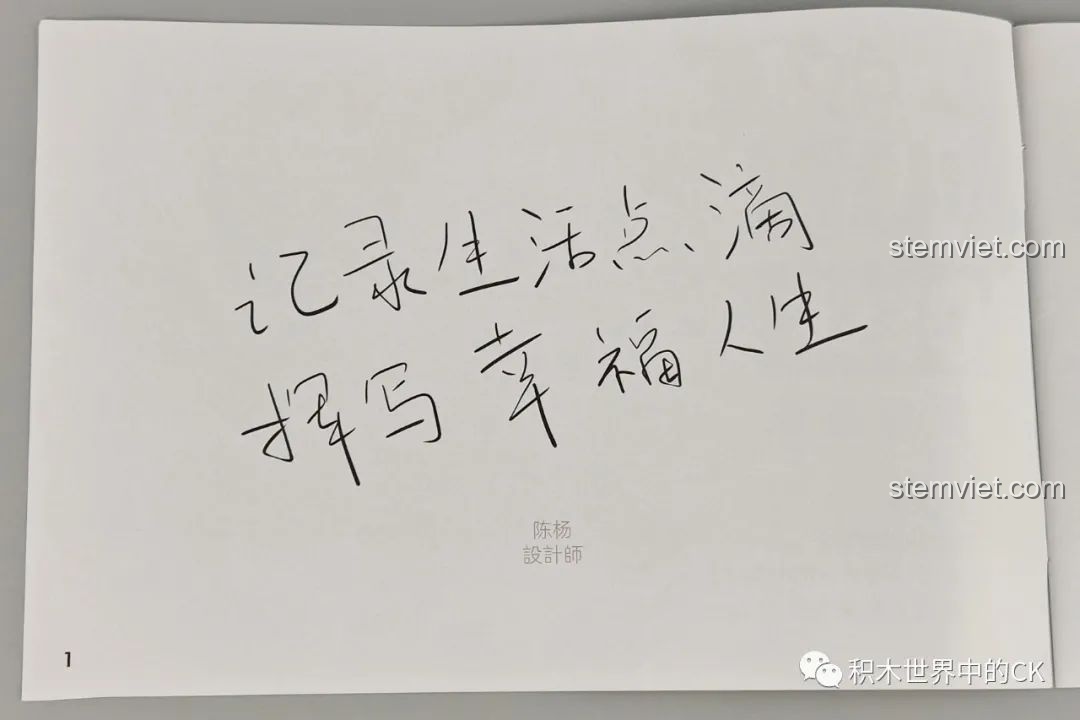 记录生活点滴
stemviet.com
挥写幸福人生
stemviet.com
陈杨
設計師
1
积木世界中的CK